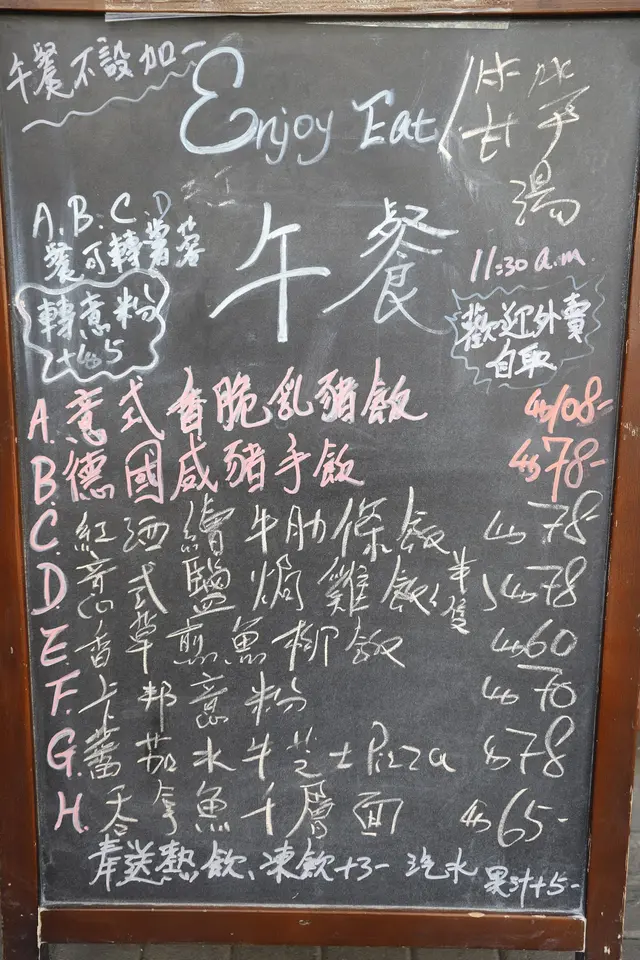 午餐不設加一
Enjoy Eat
牛味
甘筍
湯
A.B.C.D
餐可轉薯蓉
午餐
11:30 a.m.
轉意粉
+$5
歡迎外賣
自取
A. 意式香脆乳豬飯 $108-
B. 德國咸豬手飯 $78-
C. 紅酒繪牛肋條飯 $78-
D. 意式鹽焗雞飯(半隻) $78
E. 香草煎魚柳飯 $60
F. 卡邦意粉 $70
G. 蕃茄水牛芝士Pizza $78
H. 吞拿魚千層面 $65-
奉送熱飲、凍飲+3- 汽水
果汁+5-